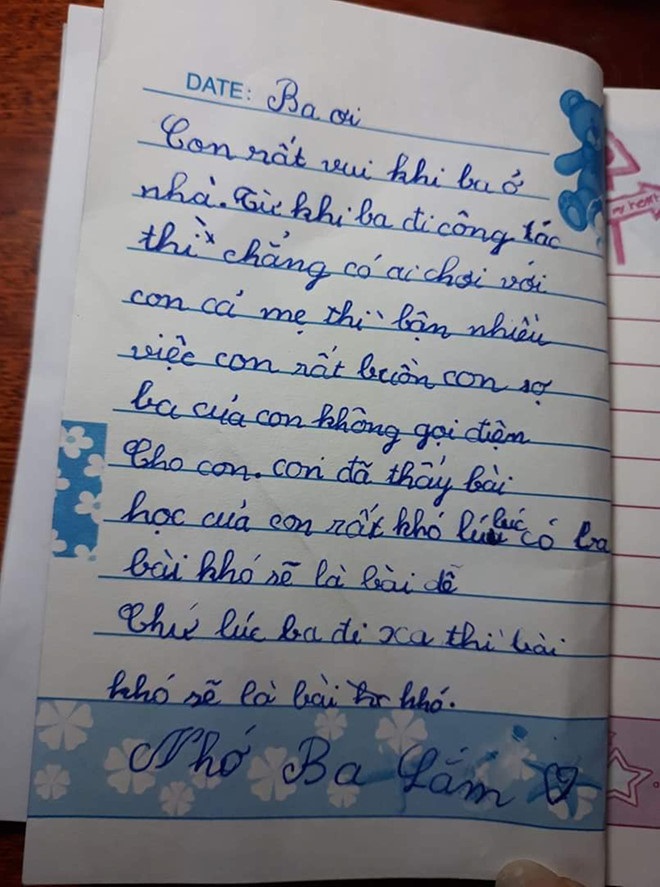 DATE: Ba ơi
Con rất vui khi ba ở
nhà. Từ khi ba đi công tác
thì chẳng có ai chơi với
con cả mẹ thì bận nhiều
việc con rất buồn con sợ
ba của con không gọi điện
cho con. con đã thấy bài
học của con rất khó lúc có ba
bài khó sẽ là bài dễ
Chứ lúc ba đi xa thì bài
khó sẽ là bài khó.
Nhớ Ba Lắm